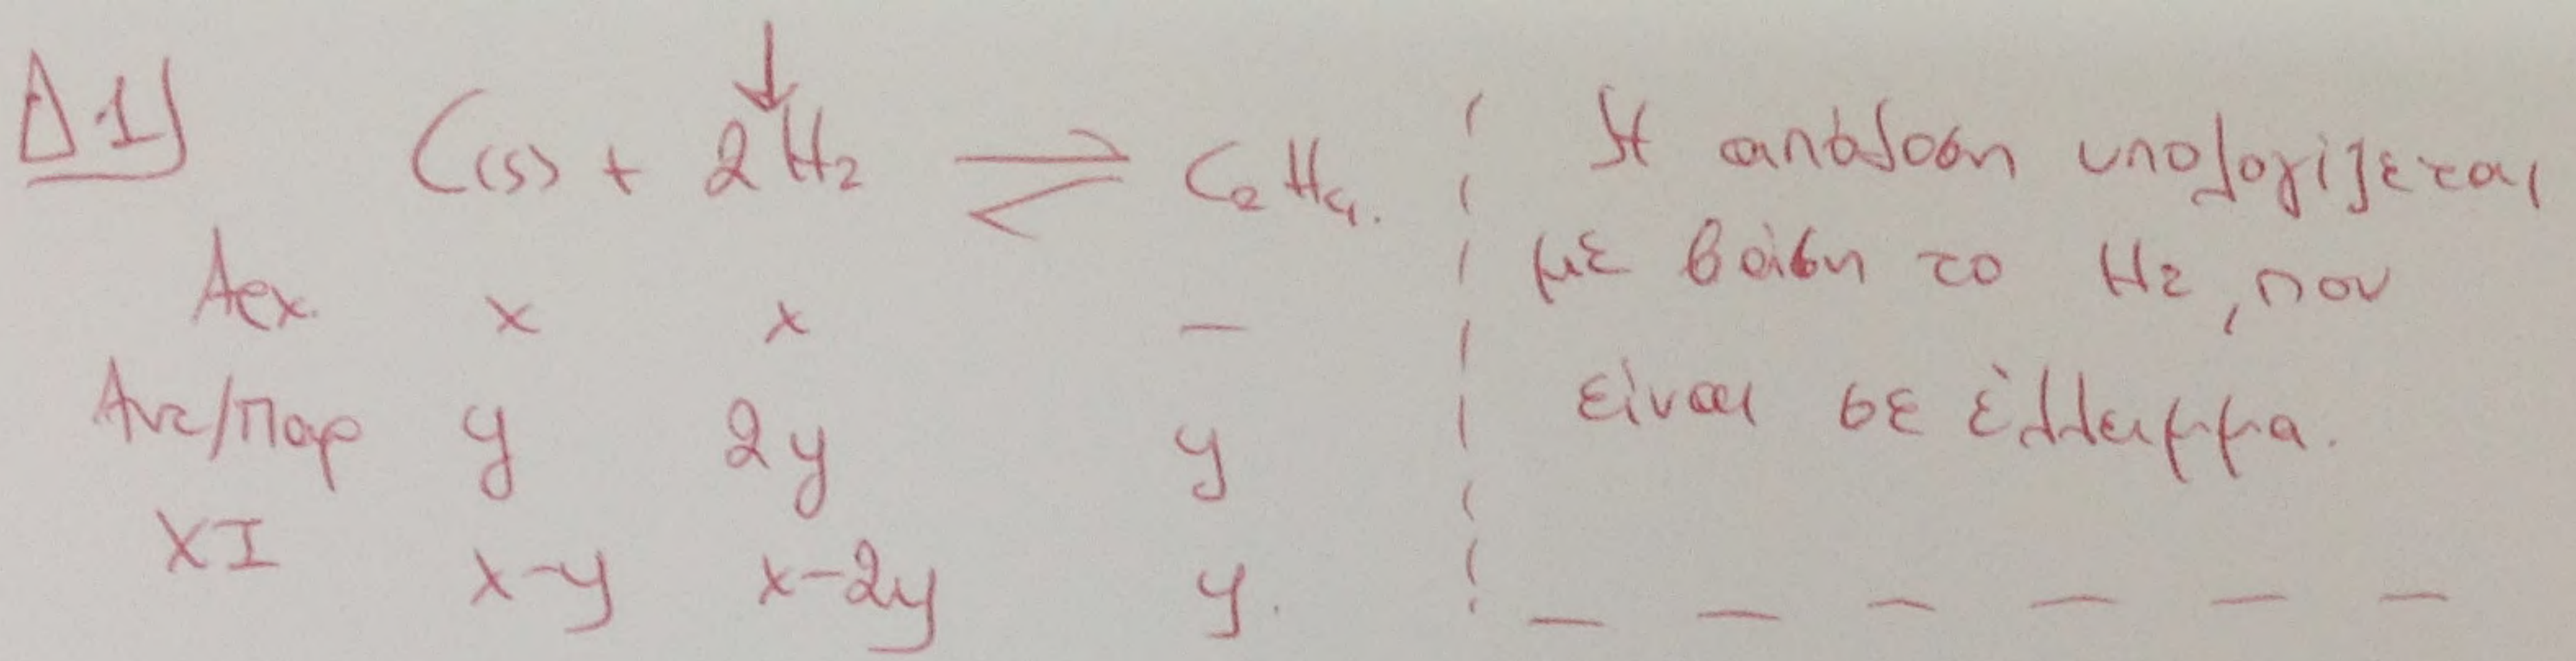 Δ1)
C(s) + 2H₂ ⇌ C₂H₄.
Αρχ. x x —
Αντ/Παρ y 2y y
ΧΙ x-y x-2y y.
Η απόδοση υπολογίζεται
με βάση το H₂, που
είναι σε έλλειμμα.